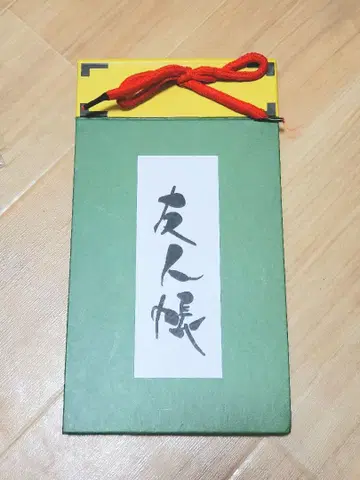 友人帳